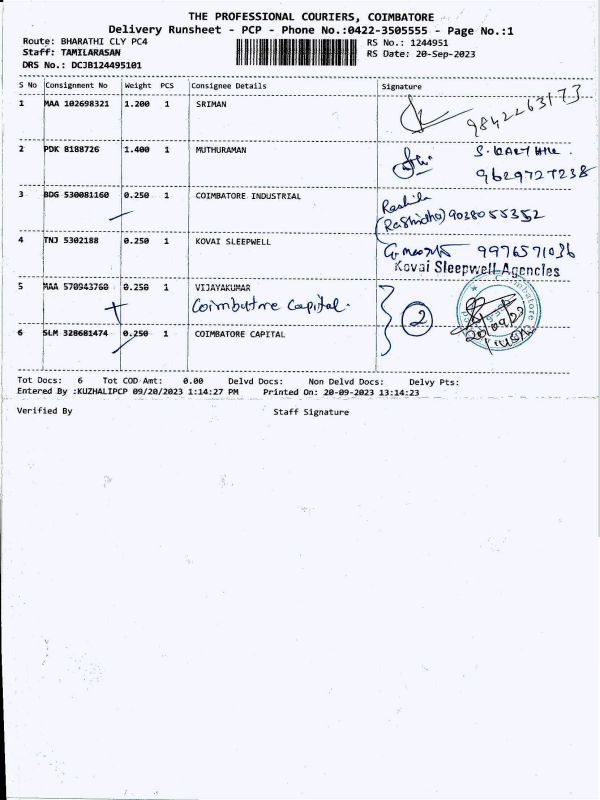 THE PROFESSIONAL COURIERS, COIMBATORE
Delivery Runsheet - PCP - Phone No.:0422-3505555 - Page No.:1
Route: BHARATHI CLY PC4
RS No.: 1244951
Staff: TAMILARASAN
RS Date: 20-Sep-2023
DRS No.: DCJB124495101
S No Consignment No Weight PCS Consignee Details Signature
1 MAA 102698321 1.200 1 SRIMAN 9842263173
2 PDK 8188726 1.400 1 MUTHURAMAN
9629727238
3 BDG 530081160 0.250 1 COIMBATORE INDUSTRIAL
(Rashidha) 9038055352
4 TNJ 5302188 0.250 1 KOVAI SLEEPWELL 9976571036
Kovai Sleepwell Agencies
5 MAA 570943760 0.250 1 VIJAYAKUMAR
Coimbatore Capital.
2
20/09/23
6 SLM 328681474 0.250 1 COIMBATORE CAPITAL
Tot Docs: 6 Tot COD Amt: 0.00 Delvd Docs: Non Delvd Docs: Delvy Pts:
Entered By :KUZHALIPCP 09/20/2023 1:14:27 PM Printed On: 20-09-2023 13:14:23
Verified By Staff Signature